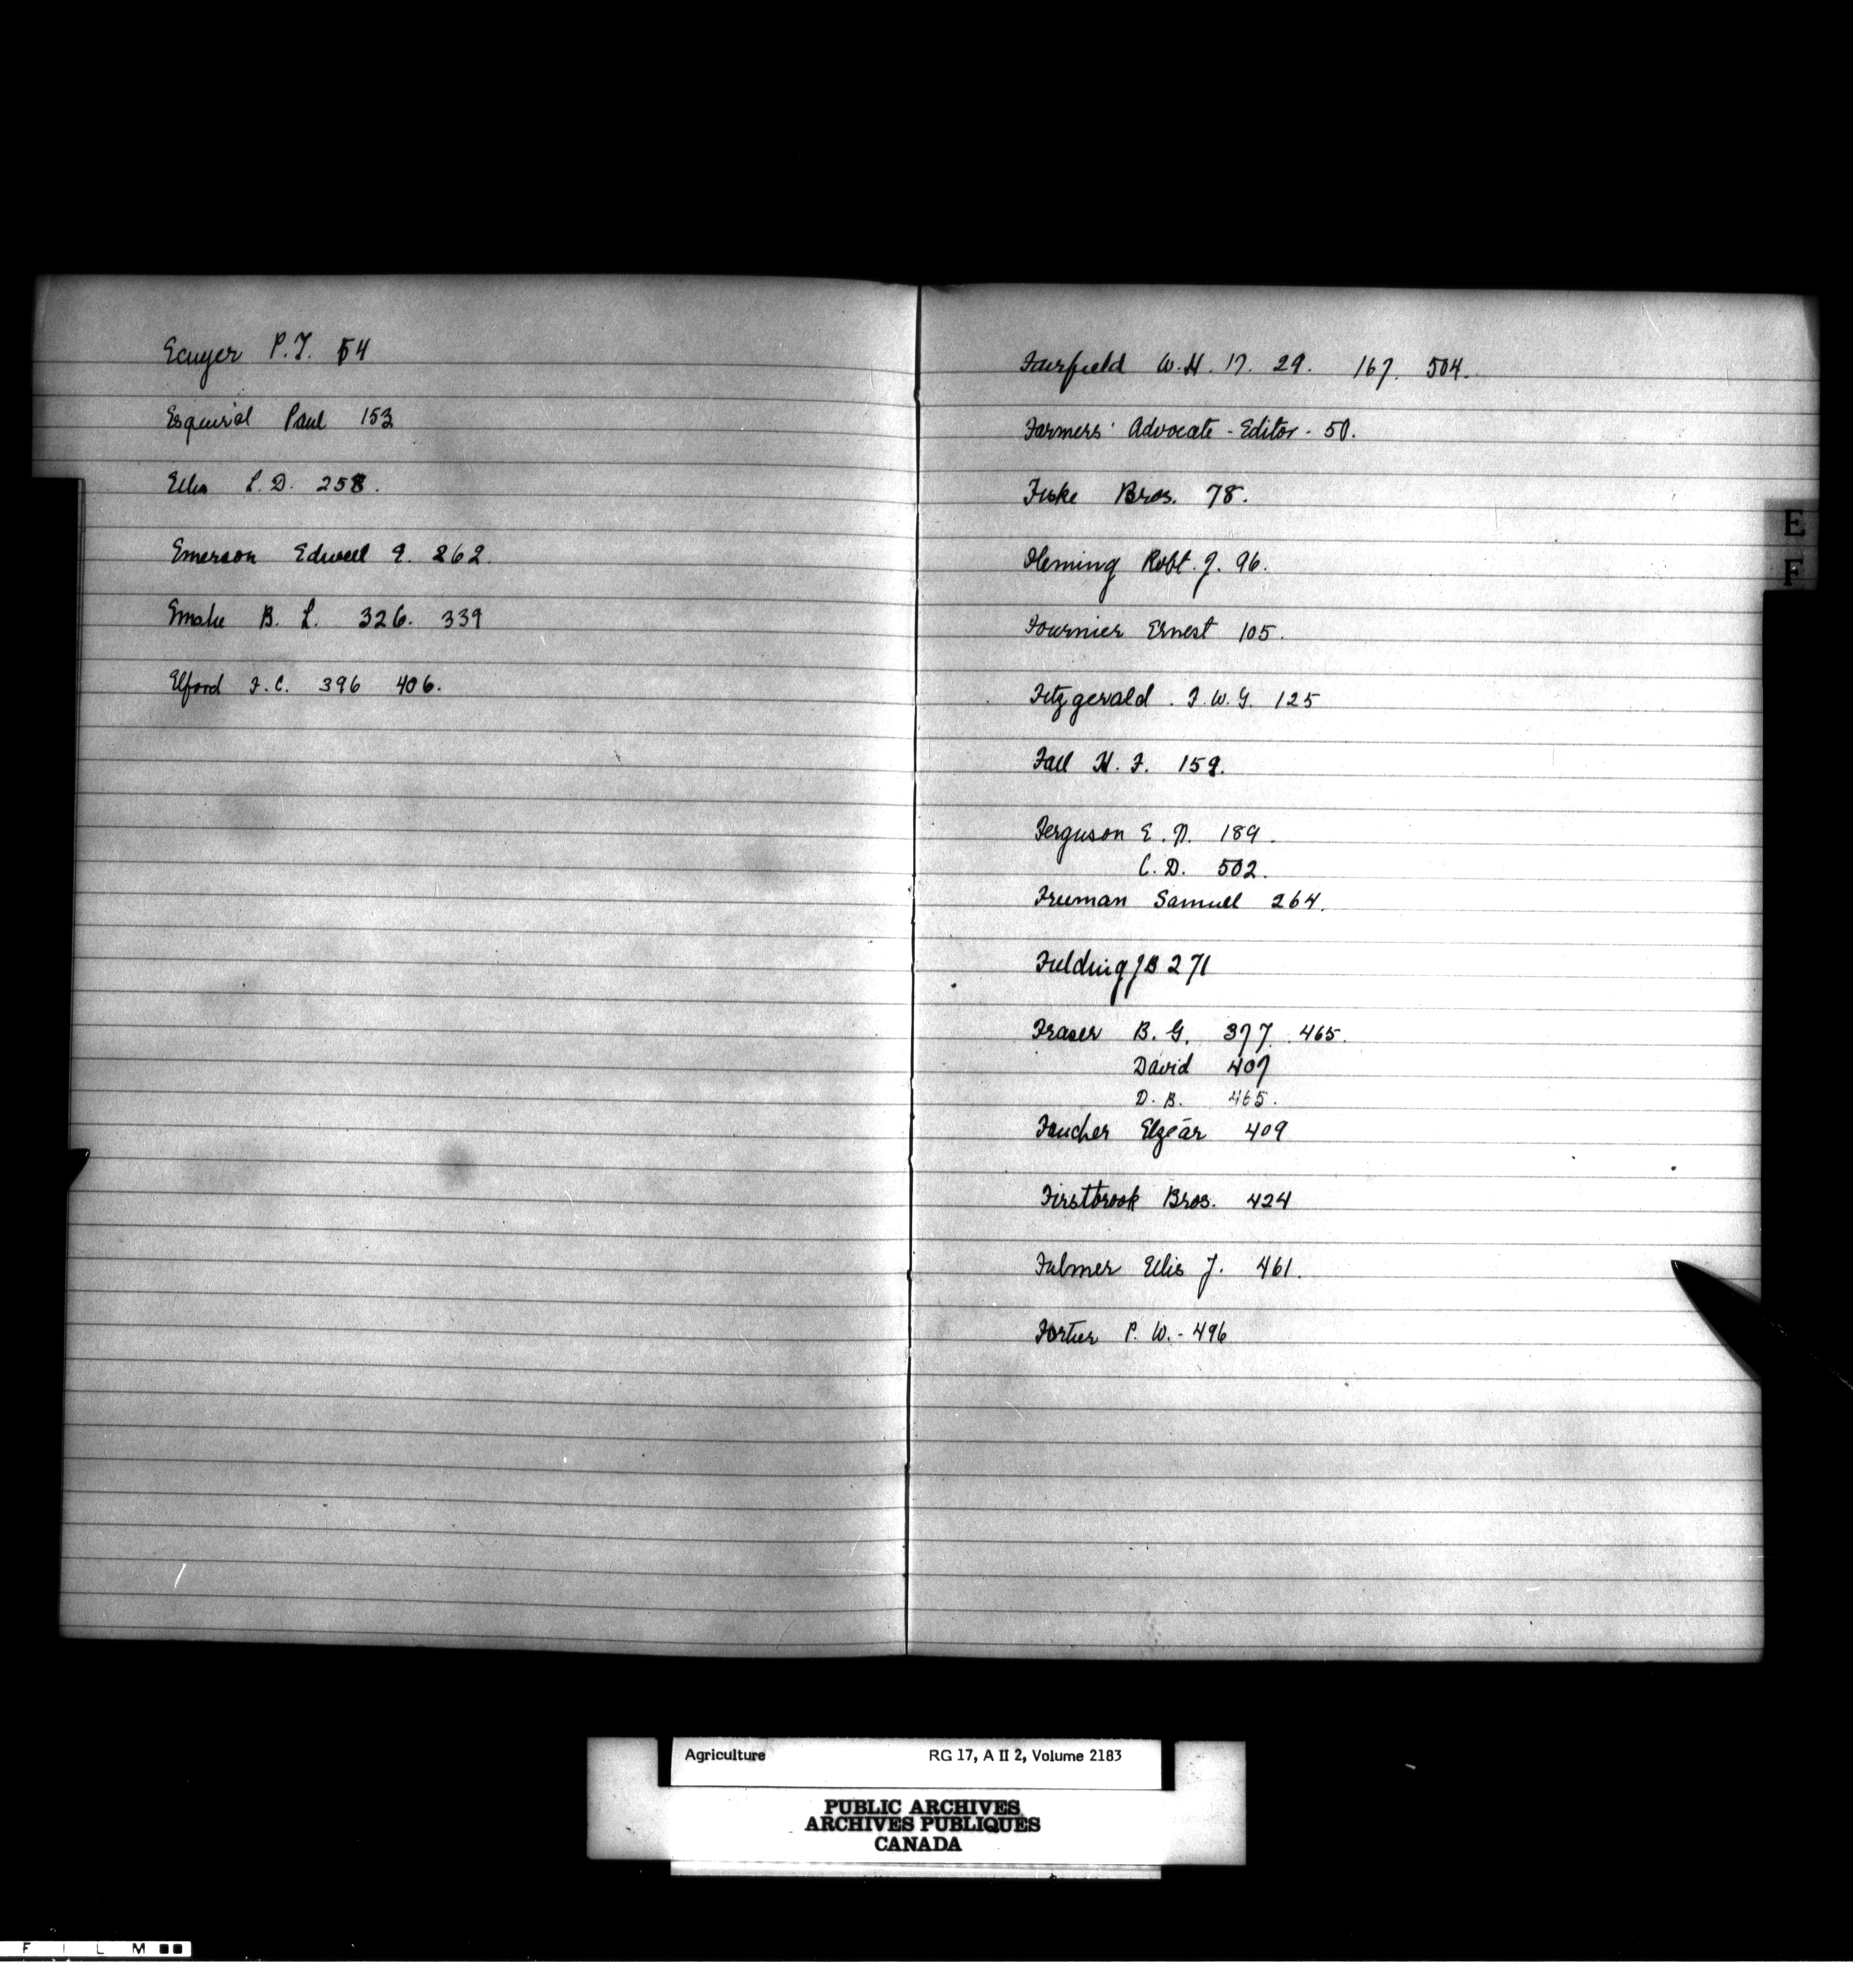 Ecuyer P.T. 54
Esquirol Paul 153
Ellis L.D. 258.
Emerson Edwell E. 262.
Emslie B. L. 326. 339
Elford F.C. 396 406.
Fairfield W.H. 17. 29. 167. 504.
Farmers' Advocate - Editor - 50.
Fiske Bros. 78.
Fleming Robt. J. 96.
Fournier Ernest 105.
Fitzgerald. F.W.G. 125
Fall H. F. 159.
Ferguson E. N. 189.
C.D. 502.
Freeman Samuel 264.
Fielding JB 271
Fraser B.G. 377. 465.
David 407
D.B. 465.
Faucher Elzéar 409
Firstbrook Bros. 424
Fulmer Ellis J. 461.
Fortier P. W. - 496
E
F
Agriculture RG 17, A II 2, Volume 2183
PUBLIC ARCHIVES
ARCHIVES PUBLIQUES
CANADA
F I L M